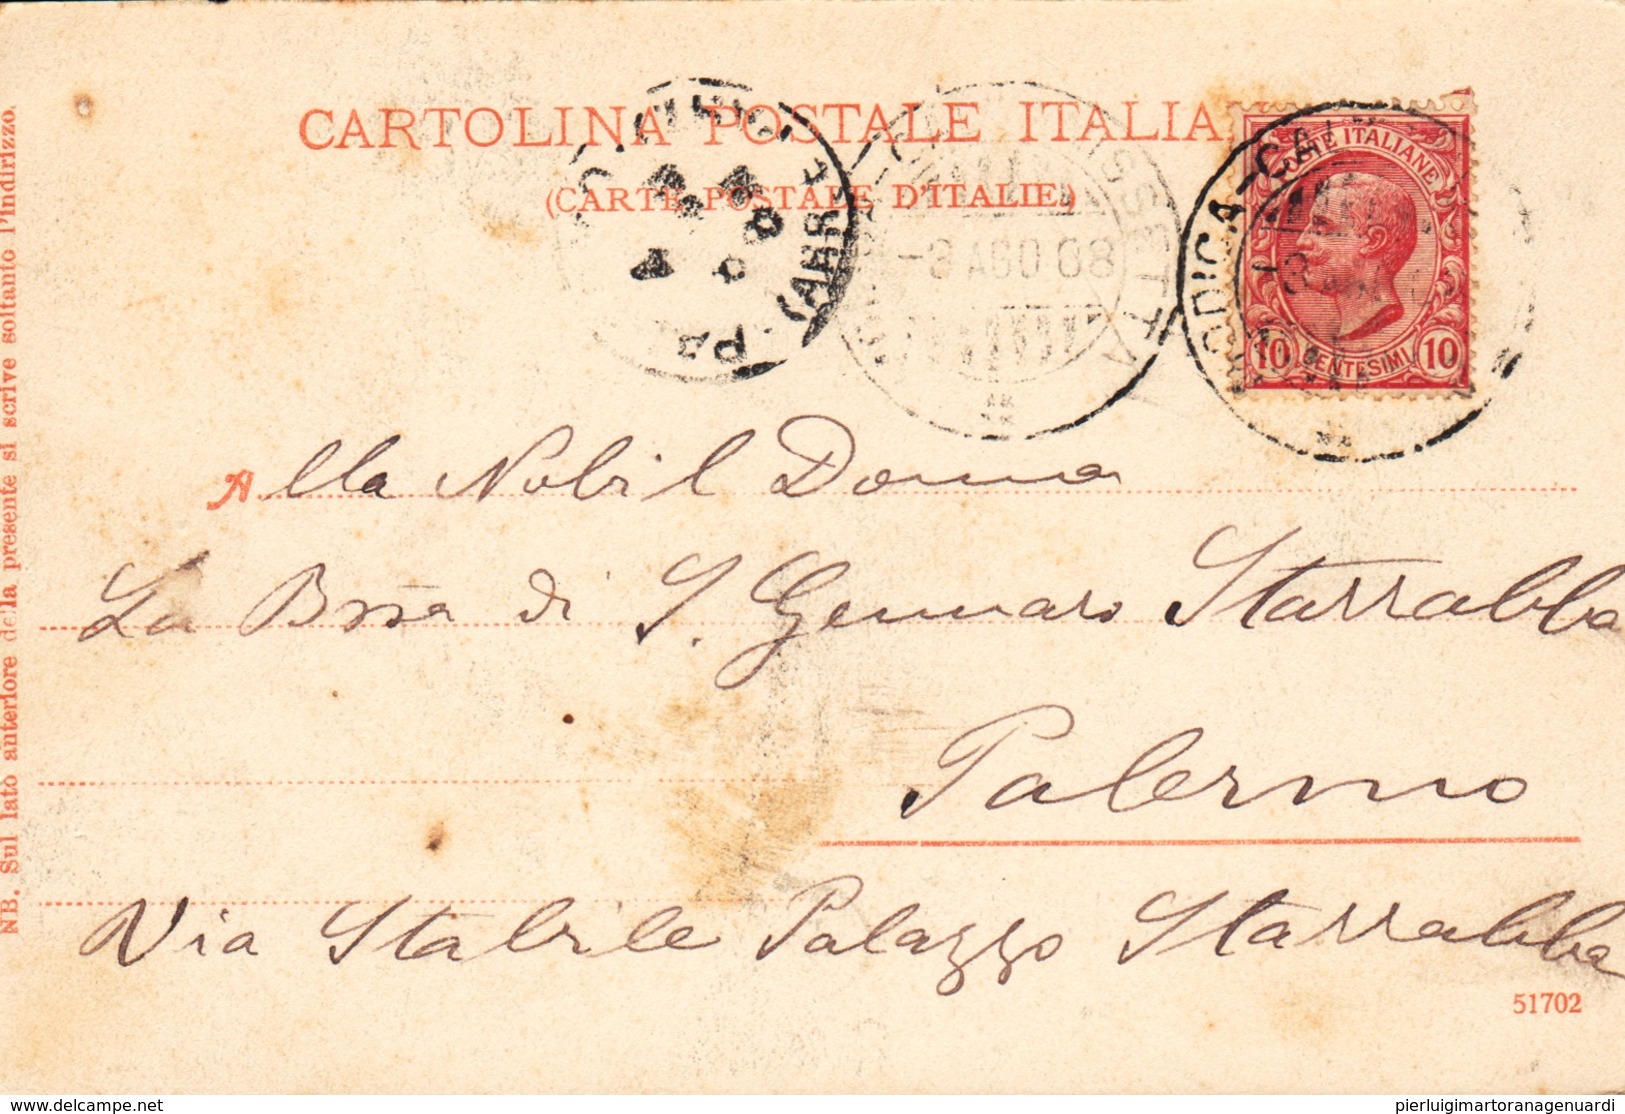 CARTOLINA POSTALE ITALIA
(CARTE POSTALE D'ITALIE)
POSTE ITALIANE
10 CENTESIMI 10
-3 AGO 08
Alla Nobil Donna
La Bssa di S. Gennaro Starrabba
Palermo
Via Stabile Palazzo Starrabba
51702
NB. Sul lato anteriore della presente si scrive soltanto l'indirizzo.
www.delcampe.net
pierluigimartoranagenuardi